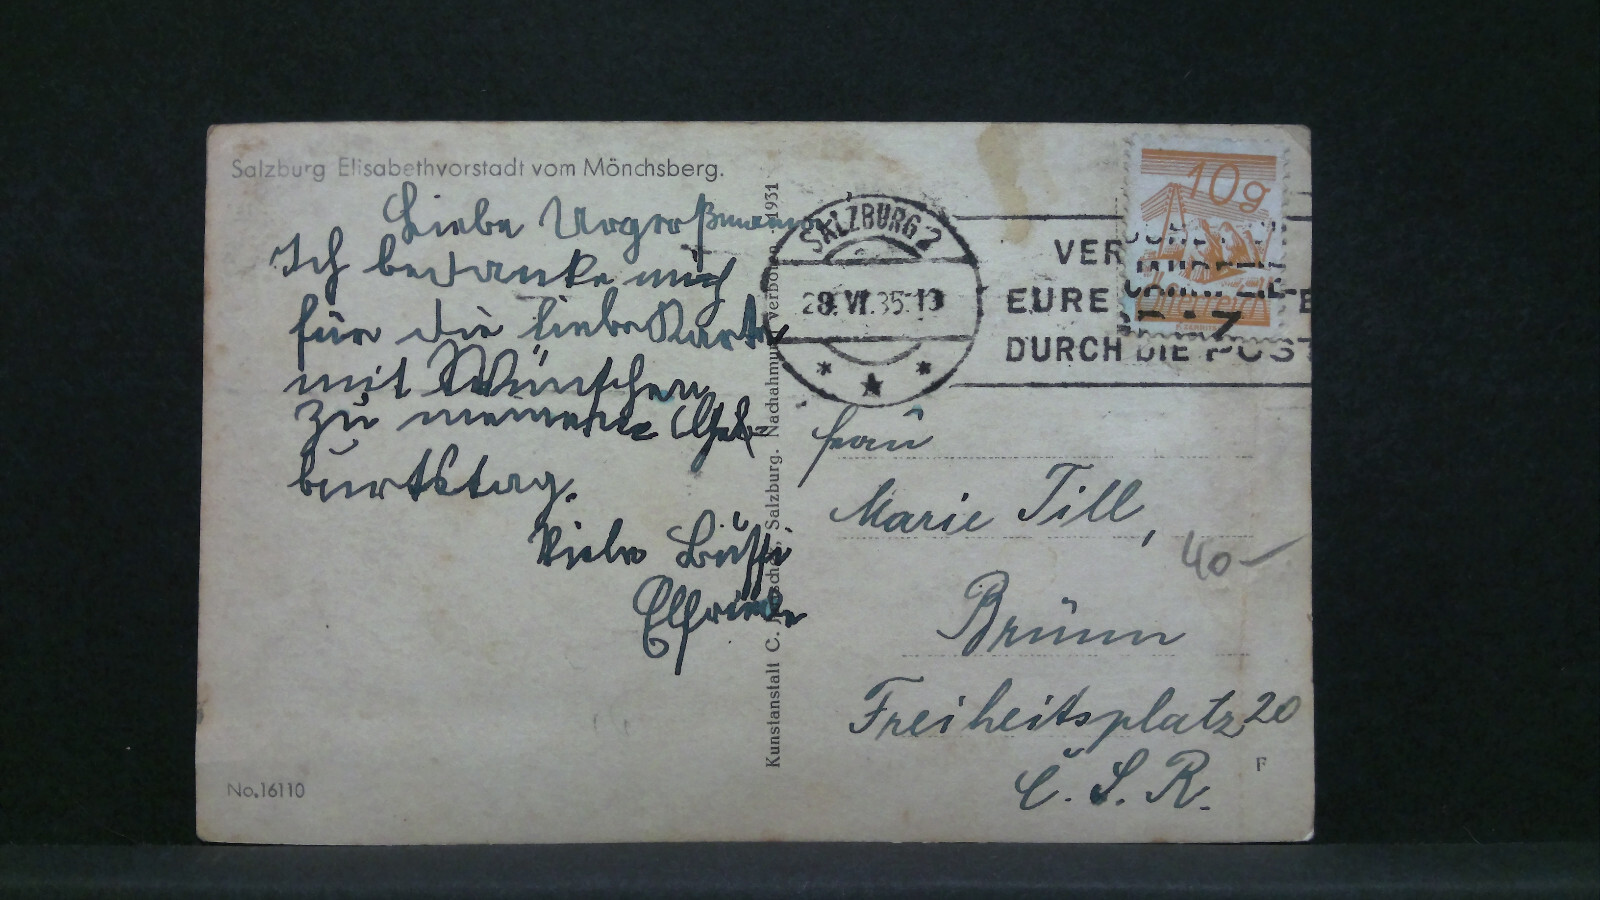 Salzburg Elisabethvorstadt vom Mönchsberg.
Liebe Urgroßmama
Ich bedanke mich
für die liebe Karte
mit Wünschen
zu meinem Ge-
burtstag.
Viele Bussi
Elfriede
No.16110
Kunstanstalt C. Salzburg. Nachahmung verboten 1931
SALZBURG 2
28. VI. 35. 13
EURE
DURCH DIE POST
10g
Österreich
Frau
Marie Till,
40-
Brünn
Freiheitsplatz 20
Č. S. R.
F